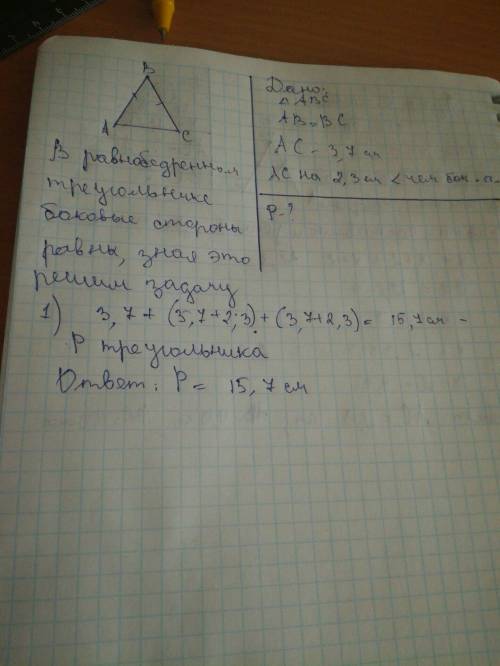 B
A
C
В равнобедренном
треугольнике
боковые стороны
равны, зная это
решим задачу
Дано:
△ABC
AB=BC
AC - 3,7 см
AC на 2,3 см < чем бок. с.
P-?
1) 3,7 + (3,7+2,3) + (3,7+2,3) = 15,7 см -
P треугольника
Ответ: P = 15,7 см